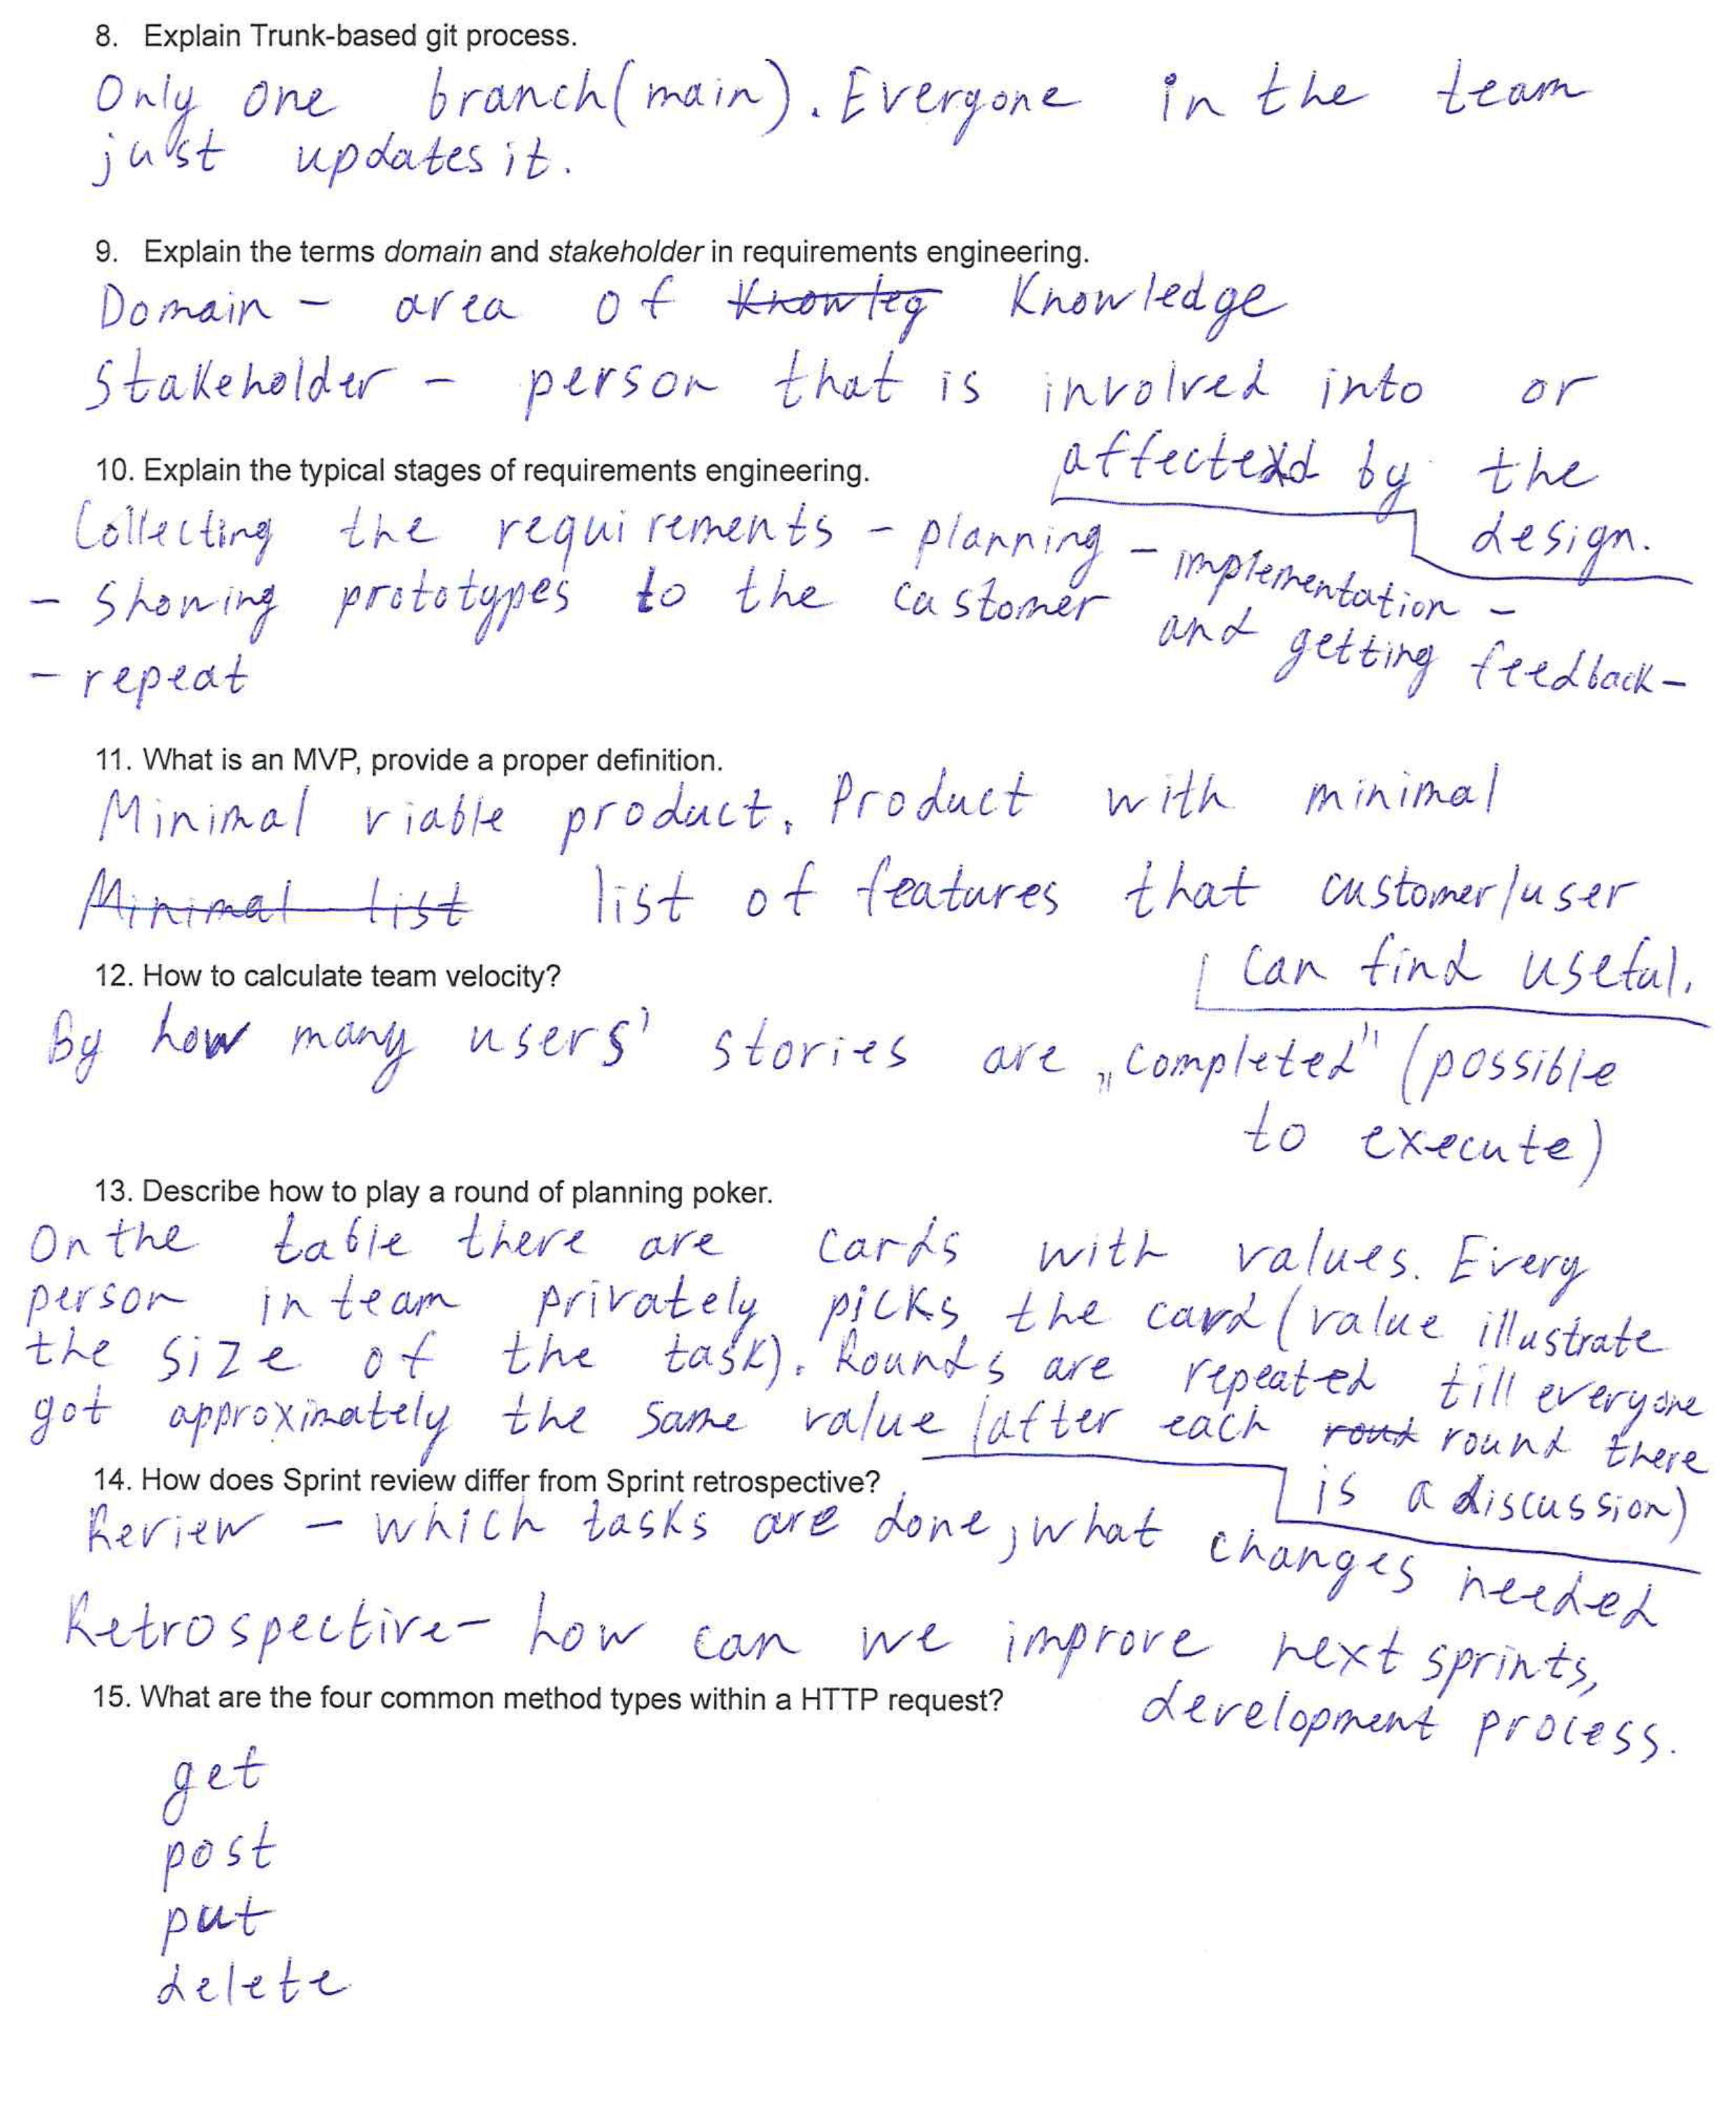 8. Explain Trunk-based git process.
Only one branch(main). Everyone in the team
just updates it.
9. Explain the terms domain and stakeholder in requirements engineering.
Domain - area of Knowleg Knowledge
Stakeholder - person that is involved into or
affected by the
design.
10. Explain the typical stages of requirements engineering.
Collecting the requirements - planning - implementation -
- Showing prototypes to the customer and getting feedback -
- repeat
11. What is an MVP, provide a proper definition.
Minimal viable product. Product with minimal
Minimal list list of features that customer/user
can find useful.
12. How to calculate team velocity?
By how many users' stories are „completed" (possible
to execute)
13. Describe how to play a round of planning poker.
On the table there are cards with values. Every
person in team privately picks the card (value illustrate
the size of the task). Rounds are repeated till everyone
got approximately the same value (after each roud round there
is a discussion)
14. How does Sprint review differ from Sprint retrospective?
Review - which tasks are done, what changes needed
Retrospective - how can we improve next sprints,
development process.
15. What are the four common method types within a HTTP request?
get
post
put
delete